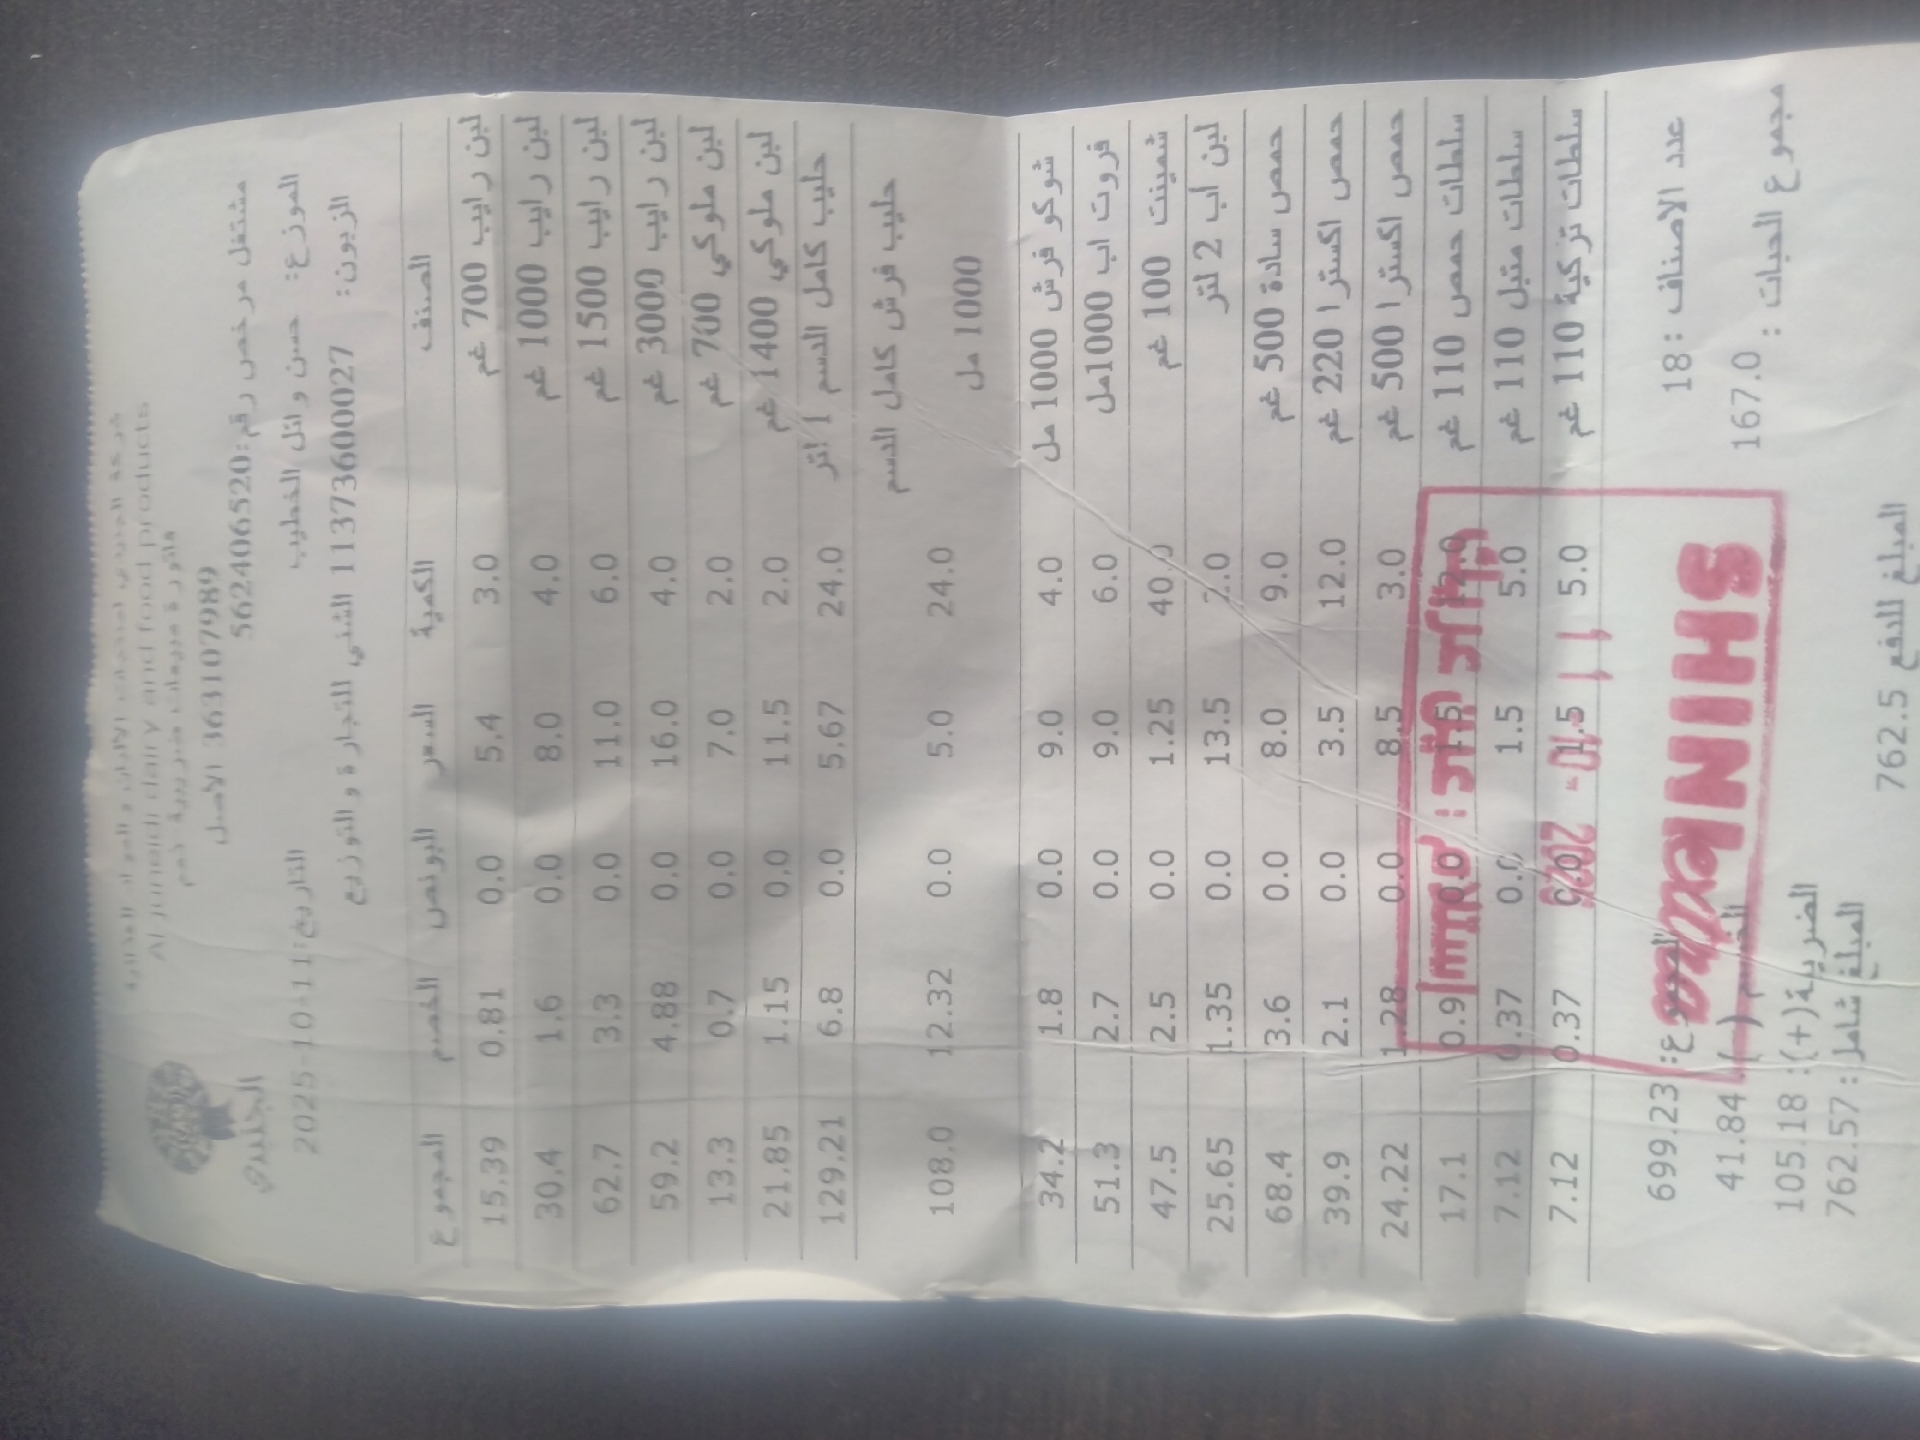 الجنيدي
Al juneidi dairy and food products
فاتورة مبيعات ضريبية ذمم
363107989 الاصل
مشتغل مرخص رقم:562406520
الموزع: حسن وائل الخطيب التاريخ:2025-10-11
الزبون: 11373600027 الشني للتجارة و التوزيع
الصنف الكمية السعر البونص الخصم المجموع
لبن رايب 700 غم 3.0 5.4 0.0 0.81 15.39
لبن رايب 1000 غم 4.0 8.0 0.0 1.6 30.4
لبن رايب 1500 غم 6.0 11.0 0.0 3.3 62.7
لبن رايب 3000 غم 4.0 16.0 0.0 4.88 59.2
لبن ملوكي 700 غم 2.0 7.0 0.0 0.7 13.3
لبن ملوكي 1400 غم 2.0 11.5 0.0 1.15 21.85
حليب كامل الدسم 1 لتر 24.0 5.67 0.0 6.8 129.21
حليب فرش كامل الدسم
1000 مل 24.0 5.0 0.0 12.32 108.0
شوكو فرش 1000 مل 4.0 9.0 0.0 1.8 34.2
فروت اب 1000مل 6.0 9.0 0.0 2.7 51.3
شمينت 100 غم 40.0 1.25 0.0 2.5 47.5
لبن اب 2 لتر 2.0 13.5 0.0 1.35 25.65
حمص سادة 500 غم 9.0 8.0 0.0 3.6 68.4
حمص اكسترا 220 غم 12.0 3.5 0.0 2.1 39.9
حمص اكسترا 500 غم 3.0 8.5 0.0 1.28 24.22
سلطات حمص 110 غم 12.0 1.5 0.0 0.9 17.1
سلطات متبل 110 غم 5.0 1.5 0.0 0.37 7.12
سلطات تركية 110 غم 5.0 1.5 0.0 0.37 7.12
2025 -10- 11
SHINI extra
عدد الاصناف :18 المجموع: 699.23
مجموع الحبات : 167.0 الخصم(-): 41.84
الضريبة(+): 105.18
المبلغ شامل: 762.57
المبلغ للدفع 762.5